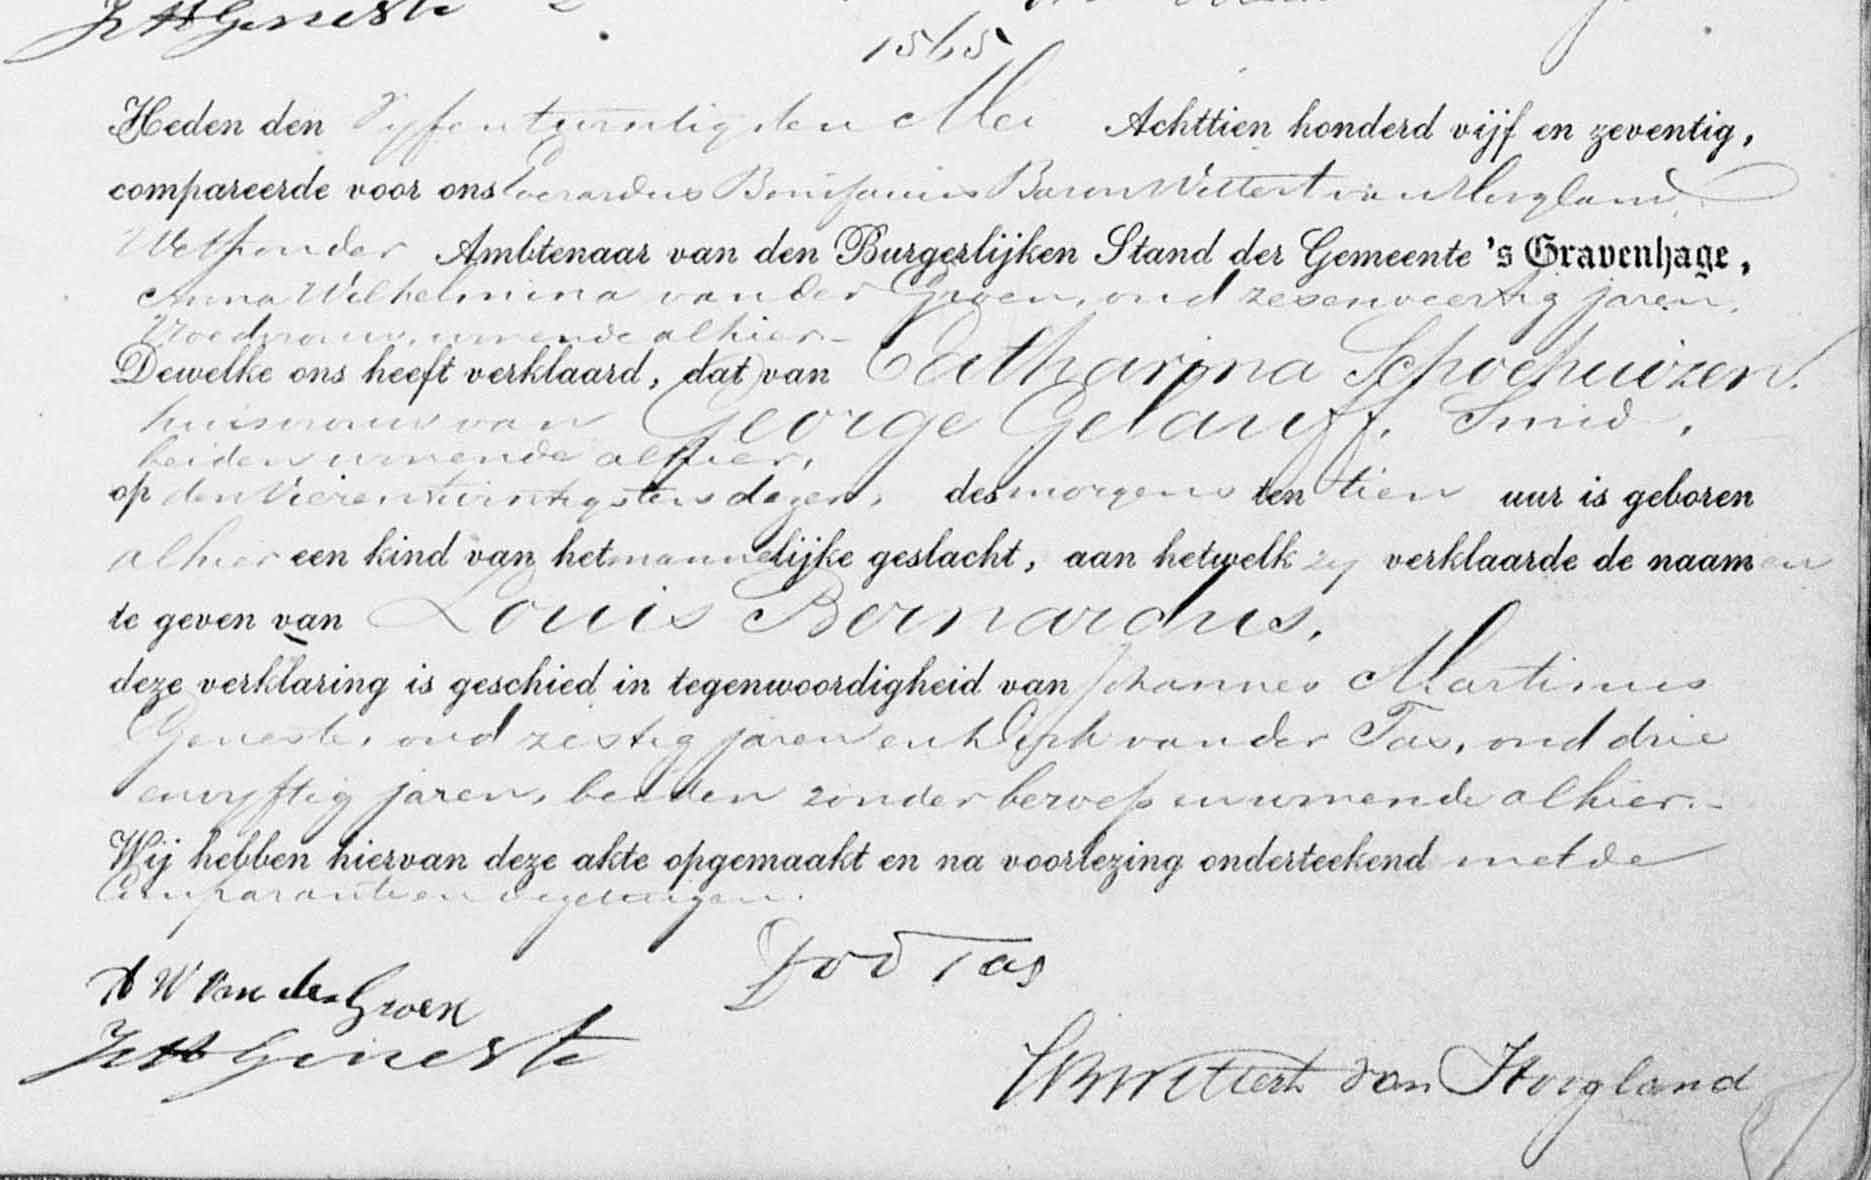 JM Geneste
1565
Heden den Vyfentwintigsten Mei Achttien honderd vijf en zeventig,
compareerde voor ons Everardus Bonifacius Baron Wittert van Hoogland,
Wethouder Ambtenaar van den Burgerlijken Stand der Gemeente 's Gravenhage,
Anna Wilhelmina van der Groen, oud zesenveertig jaren,
Vroedvrouw, wonende alhier.-
Dewelke ons heeft verklaard, dat van Catharina Schoehuizen,
huisvrouw van George Gelauff, Smid,
beiden wonende alhier,
op den Vierentwintigsten dezer, des morgens ten tien uur is geboren
alhier een kind van het mannelijke geslacht, aan hetwelk zy verklaarde de naamen
te geven van Louis Bernardus,
deze verklaring is geschied in tegenwoordigheid van Johannes Martinus
Geneste, oud zestig jaren en Dirk van der Tas, oud drie
envyftig jaren, beiden zonder beroep en wonende alhier.-
Wij hebben hiervan deze akte opgemaakt en na voorlezing onderteekend met de
Comparante en de getuigen.
A W Van der Groen
D v d Tas
JM Geneste
Wittert van Hoogland